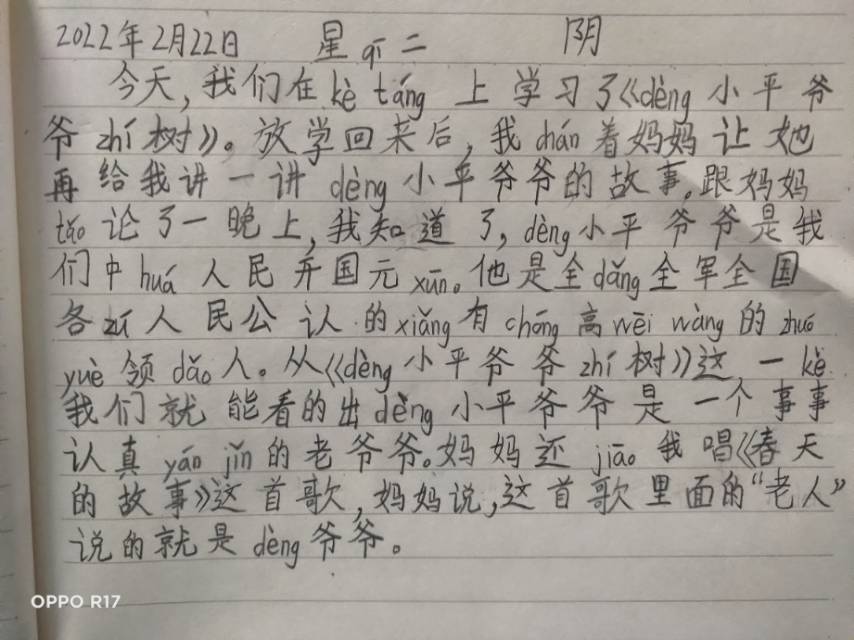 2022年2月22日 星qī二 阴
今天,我们在kè táng 上学习了《dèng小平爷
爷zhí树》。放学回来后,我chán着妈妈让她
再给我讲一讲dèng小平爷爷的故事。跟妈妈
tǎo论了一晚上,我知道了,dèng小平爷爷是我
们中huá人民开国元xūn。他是全dǎng全军全国
各zú人民公认的xiǎng有chóng高wēi wàng的zhuó
yuè领dǎo人。从《dèng小平爷爷zhí树》这一kè
我们就能看的出dèng小平爷爷是一个事事
认真yán jǐn的老爷爷。妈妈还jiāo我唱《春天
的故事》这首歌,妈妈说,这首歌里面的“老人”
说的就是dèng爷爷。
OPPO R17